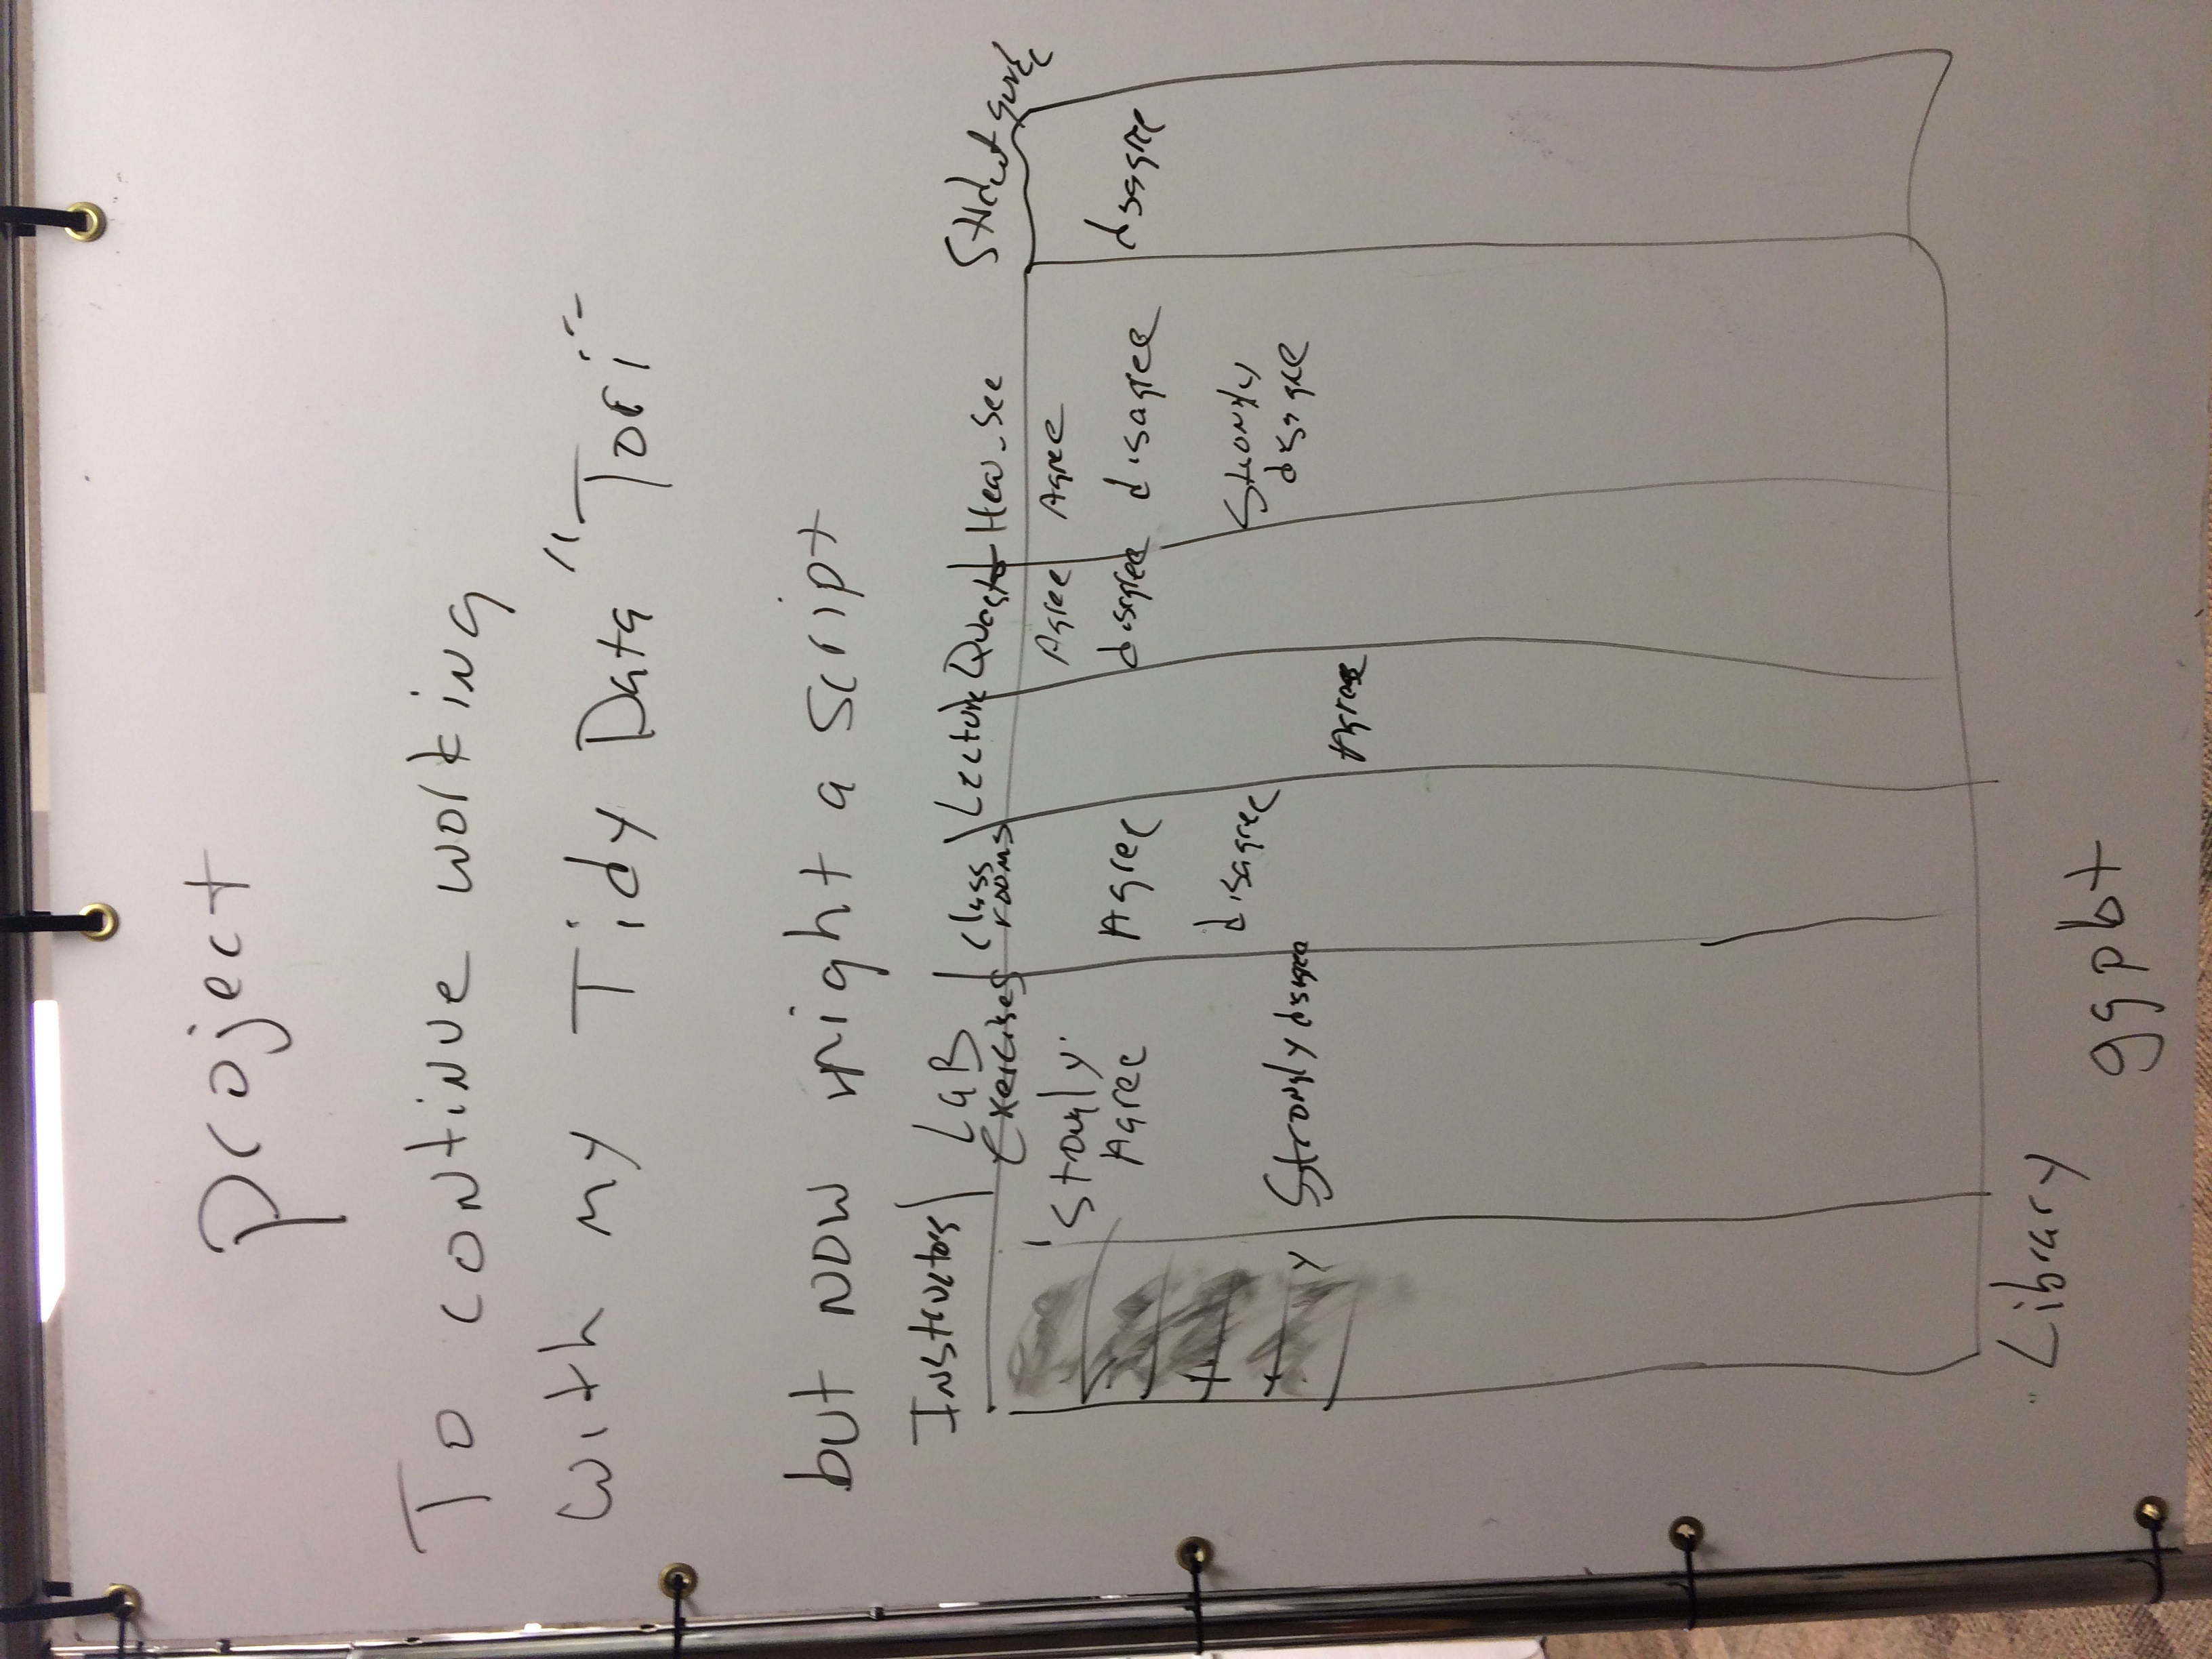 project
To continue working
with my Tidy Data "Tori"
but now might a script
Instructors LaB Exercises class rooms Lecture Hear_See Student guide
Agree Agree
Strongly Agree Agree disagree disagree disagree
disagree Strongly disagree
Y Strongly disagree
Agree
Library
ggplot